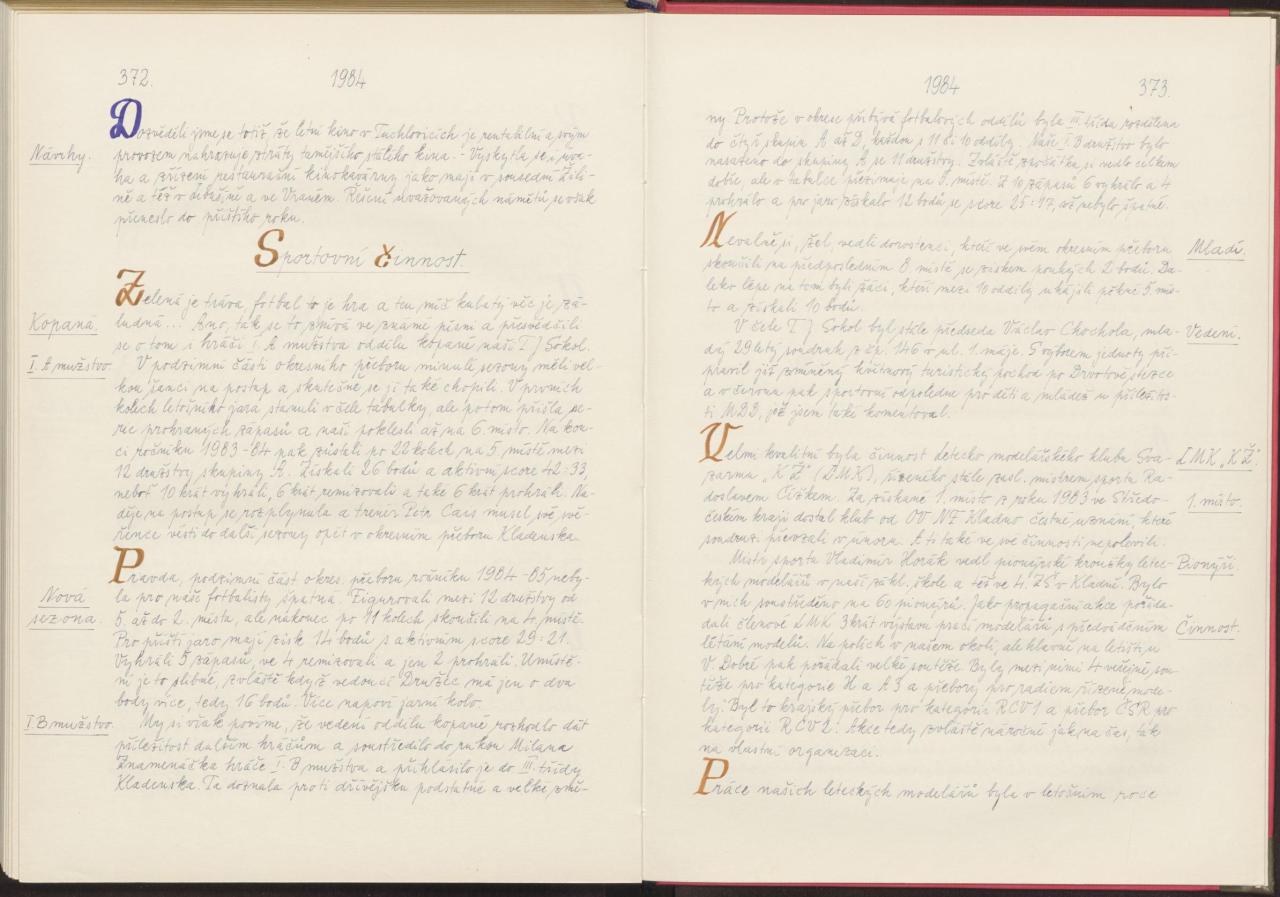 372. 1984
Dozvěděli jsme se totiž, že letní kino v Tuchlovicích je rentabilní a svým
Návrhy. provozem nahrazuje ztráty tamějšího stálého kina. - Vyskytla se i úva-
ha a zřízení restaurační kinokavárny jako mají v sousední Žili-
ně a též v Libušíně a ve Vraném. Řešení uvažovaných námětů se však
přeneslo do příštího roku.
Sportovní činnost.
Zelená je tráva, fotbal to je hra a ten míč kulatý věc je zá-
Kopaná. ludná... Ano, tak se to zpívá ve známé písni a přesvědčili
se o tom i hráči I. A mužstva oddílu kopané naší TJ Sokol.
I. A mužstvo V podzimní části okresního přeboru minulé sezony měli vel-
kou šanci na postup a skutečně se jí také chopili. V prvních
kolech letošního jara stanuli v čele tabulky, ale potom přišla se-
rie prohraných zápasů a naši poklesli až na 6. místo. Na kon-
ci ročníku 1983-84 pak zůstali po 22 kolech na 5. místě mezi
12 družstvy skupiny A. Získali 26 bodů a aktivní score 42:33,
neboť 10 krát vyhráli, 6 krát remizovali a také 6 krát prohráli. Na-
děje na postup se rozplynula a trenér Petr Cais musel své svě-
řence vésti do další sezony opět v okresním přeboru Kladenska.
Pravda, podzimní část okres. přeboru ročníku 1984-85 neby-
Nová la pro naše fotbalisty špatná. Figurovali mezi 12 družstvy od
sezona. 5. až do 2. místa, ale nakonec po 11 kolech skončili na 4. místě.
Pro příští jaro mají zisk 14 bodů s aktivním score 29:21.
Vyhráli 5 zápasů, ve 4 remizovali a jen 2 prohráli. Umístě-
ní je to slibné, zvláště když vedoucí Družec má jen o dva
body více, tedy 16 bodů. Více napoví jarní kolo.
I B mužstvo. My si však povíme, že vedení oddílu kopané rozhodlo dát
příležitost dalším hráčům a soustředilo do rukou Milana
Znamenáčka hráče I. B mužstva a přihlásilo je do III. třídy
Kladenska. Ta doznala proti dřívějšku podstatné a velké změ-
1984 373.
ny. Protože v okrese přibývá fotbalových oddílů byla III. třída rozdělena
do čtyř skupin A až D, každou s 11 či 10 oddíly. Naše I. B družstvo bylo
nasazeno do skupiny A se 11 družstvy. Zvláště zpočátku si vedlo celkem
dobře, ale v tabulce přezimuje na 5. místě. Z 10 zápasů 6 vyhrálo a 4
prohrálo a pro jaro získalo 12 bodů se score 25:17, což nebylo špatné.
Nevalně si, žel, vedli dorostenci, kteří ve svém okresním přeboru Mladí.
skončili na předposledním 8. místě se ziskem pouhých 2 bodů. Da-
leko lépe na tom byli žáci, kteří mezi 10 oddíly uhájili pěkné 5. mís-
to a získali 10 bodů.
V čele TJ Sokol byl stále předseda Václav Chochola, mla- Vedení.
dý 29letý soudruh z čp. 146 v ul. 1. máje. S výborem jednoty při-
pravil již zmíněný květnový turistický pochod po Drvotově stezce
a v červnu pak sportovní odpoledne pro děti a mládež u příležitos-
ti MDD, jež jsem také komentoval.
Velmi kvalitní byla činnost letecko modelářského klubu Sva- LMK „KŽ“.
zarmu „KŽ“ (LMK), řízeného stále zasl. mistrem sportu Ra-
doslavem Čížkem. Za získané 1. místo z roku 1983 ve Středo- 1. místo.
českém kraji dostal klub od OV NF Kladno čestné uznání, které
soudruzi převzali v únoru. A ti také ve své činnosti nepolevili.
Mistr sportu Vladimír Horák vedl pionýrské kroužky letec- Pionýři.
kých modelářů v naší zákl. škole a též ve 4. ZŠ v Kladně. Bylo
v nich soustředěno na 60 pionýrů. Jako propagační akce pořá-
dali členové LMK 3krát výstavu prací modelářů s předváděním Činnost.
létání modelů. Na polích v našem okolí, ale hlavně na letišti u
V. Dobré pak pořádali velké soutěže. Byly mezi nimi 4 veřejné sou-
těže pro kategorie H a A3 a přebory pro radiem řízené mode-
ly. Byl to krajský přebor pro kategorii RCV1 a přebor ČSR pro
kategorii RCV2. Akce tedy zvláště náročné jak na čas, tak
na vlastní organizaci.
Práce našich leteckých modelářů byla v letošním roce